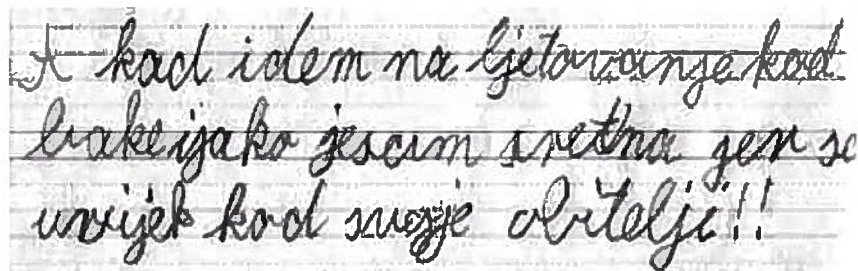 A kad idem na ljetovanje kod
bake ijako jesam sretna jer se
uvijek kod svoje obitelji!!